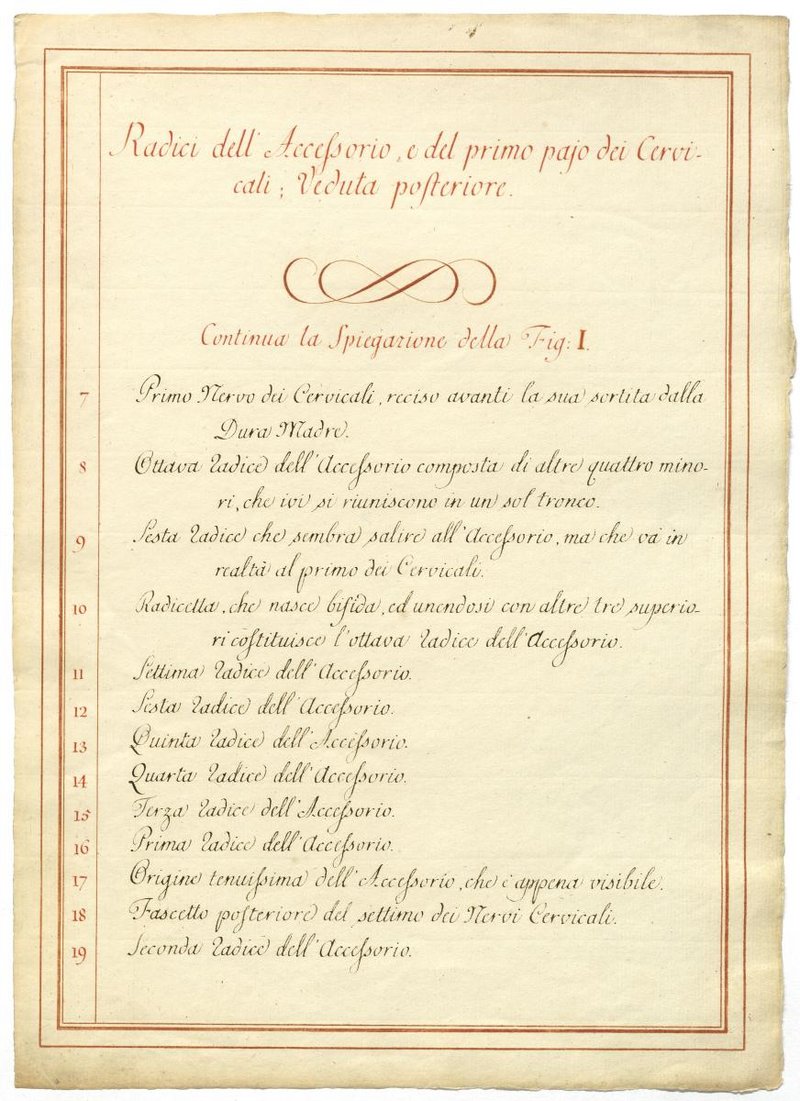 Radici dell'Accessorio, e del primo pajo dei Cervi-
cali; Veduta posteriore.
Continua la Spiegazione della Fig: I.
7 Primo Nervo dei Cervicali, reciso avanti la sua sortita dalla
Dura Madre.
8 Ottava radice dell'Accessorio composta di altre quattro mino-
ri, che ivi si riuniscono in un sol tronco.
9 Sesta radice che sembra salire all'Accessorio, ma che vá in
realtà al primo dei Cervicali.
10 Radicetta, che nasce bifida, ed unendosi con altre tre superio-
ri costituisce l'ottava radice dell'Accessorio.
11 Settima radice dell'Accessorio.
12 Sesta radice dell'Accessorio.
13 Quinta radice dell'Accessorio.
14 Quarta radice dell'Accessorio.
15 Terza radice dell'Accessorio.
16 Prima radice dell'Accessorio.
17 Origine tenuissima dell'Accessorio, che è appena visibile.
18 Fascetto posteriore del settimo dei Nervi Cervicali.
19 Seconda radice dell'Accessorio.